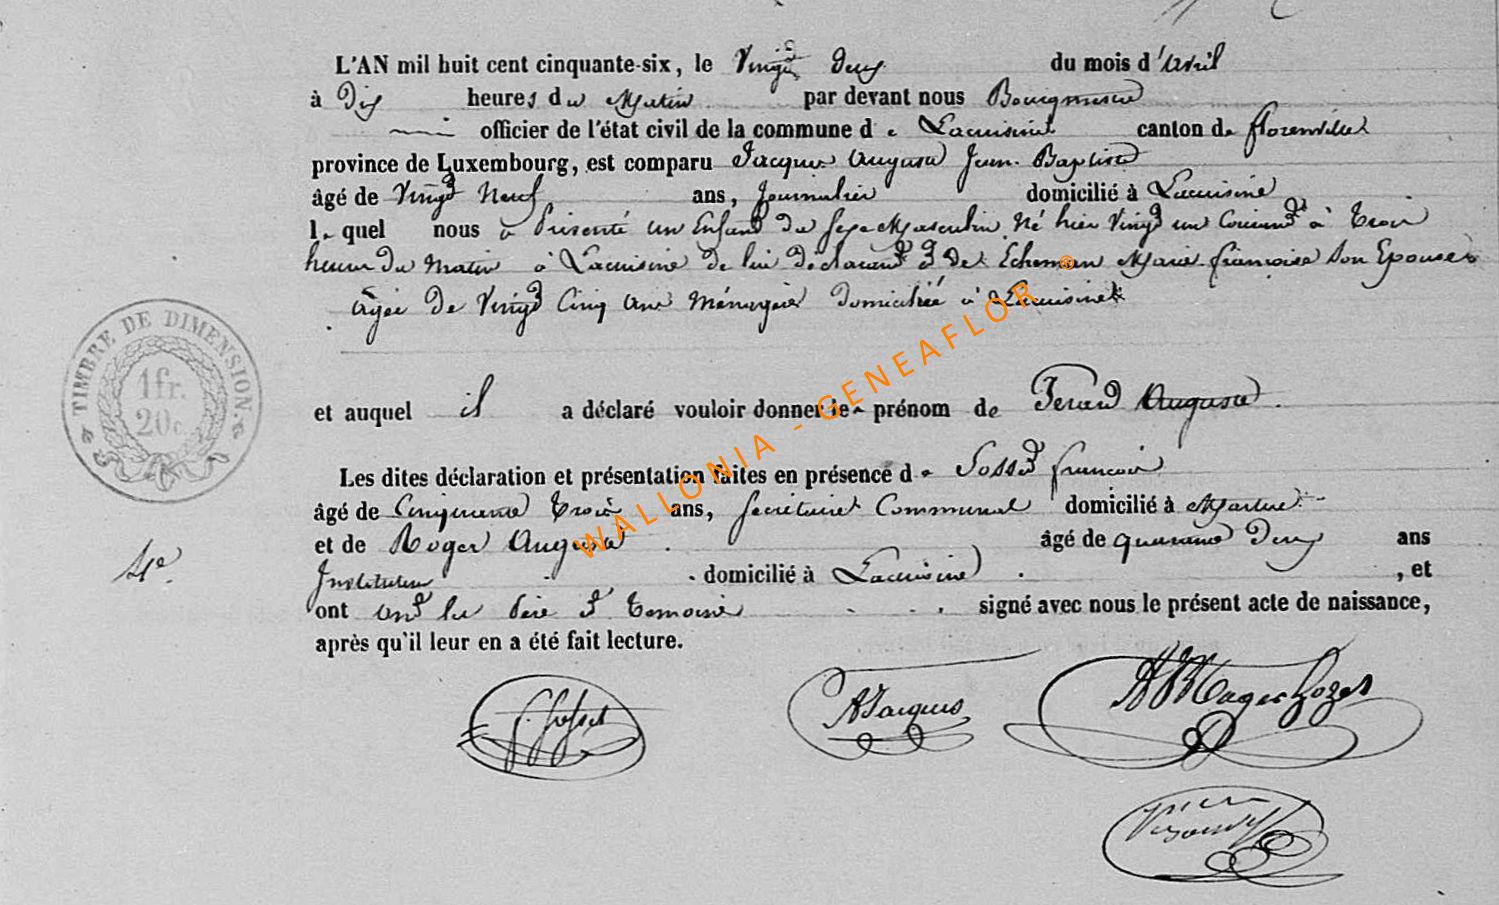 L'AN mil huit cent cinquante-six, le Vingt Deux du mois d'avril
à Dix heures du Matin par devant nous Bourgmestre
officier de l'état civil de la commune de Lacuisine canton de florenville
province de Luxembourg, est comparu Jacques Auguste Jean Baptiste
âgé de Vingt Neuf ans, Journalier domicilié à Lacuisine
lequel nous a Présenté un Enfant du sexe Masculin Né hier Vingt un Courant à Trois
heures du matin à Lacuisine de lui déclarant et de Echeman Marie françoise Son Epouse
agée de Vingt Cinq ans Ménagère domiciliée à Lacuisine
TIMBRE DE DIMENSION.
1fr.
20c.
et auquel il a déclaré vouloir donner le prénom de Auguste
Les dites déclaration et présentation faites en présence de Sosset francois
âgé de Cinquante Trois ans, Secrétaire Communal domicilié à
et de Roger Auguste âgé de quarante Deux ans
Instituteur domicilié à Lacuisine, et
ont les Père et Temoins signé avec nous le présent acte de naissance,
après qu'il leur en a été fait lecture.
AJacques
WALLONIA - GENEAFLOR ®